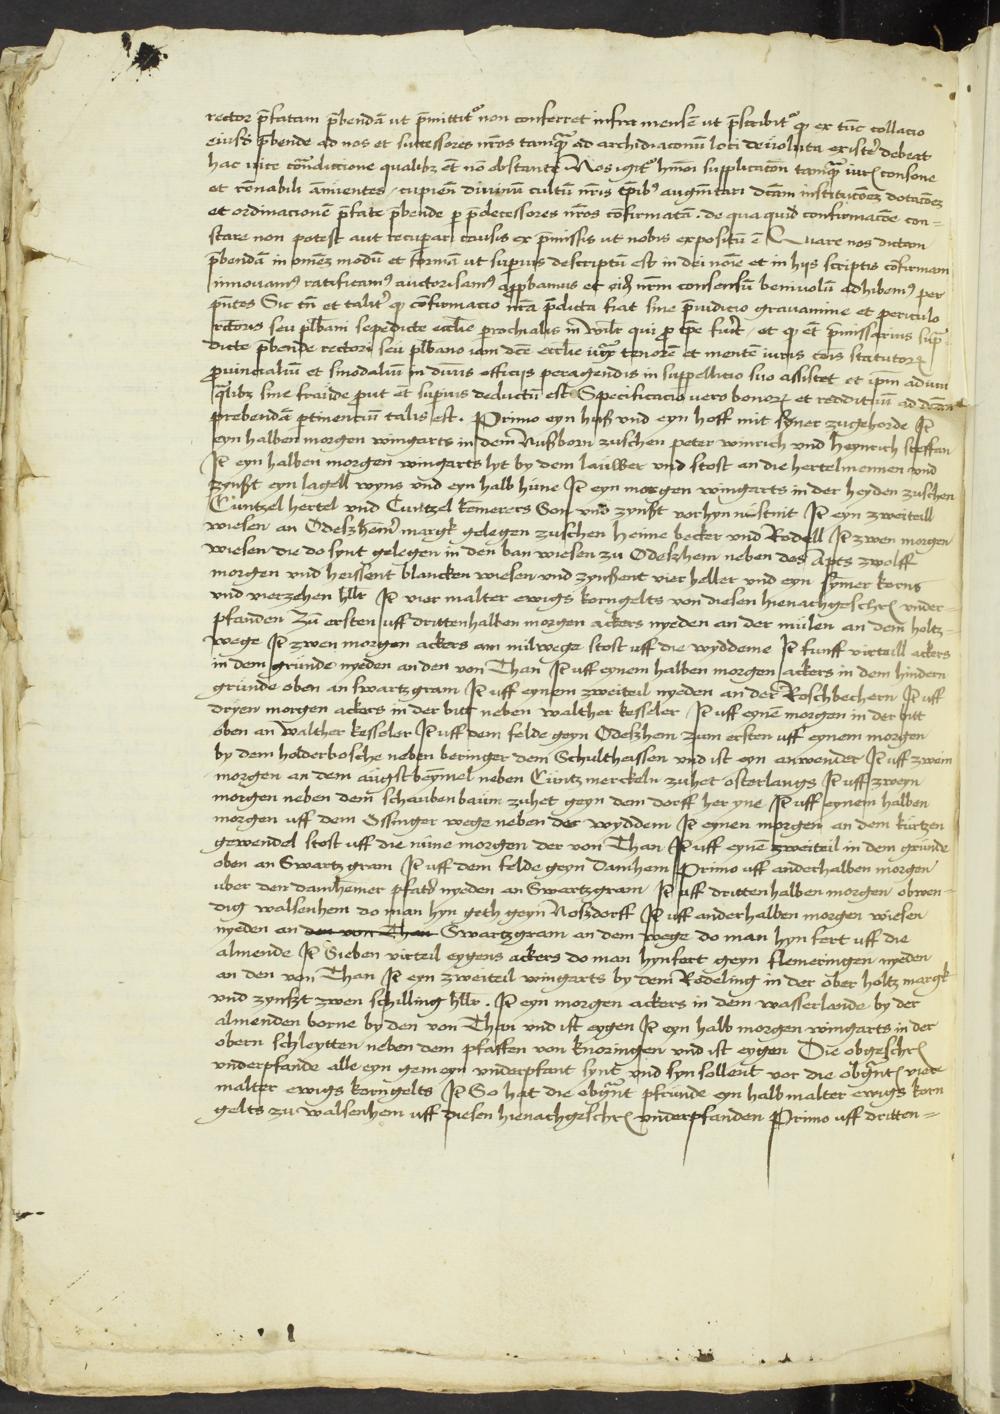 rector p̄fatam p̄bendā ut p̄mittit᷑ non conferret infra mensē ut p̄scribit᷑ qd ex tūc collacio
eiusdē p̄bende ad nos et successores nr̄os tamq̄ ad archidiaconū loci deuoluta existēr debeat
hac vice cōn̄dictione qualibz et̄ nō obstante Nos igit᷑ hmōi supplicacōn tamq̄ iurj consone
et rōnabili ānuentes cupien̄ diuinū cultū nr̄is tp̄ib9 augm̄tari dc̄am institucōez dotacōez
et ordinacionē p̄fate p̄bende p p̄decessores nr̄os cōfirmatā . de qua quid confirmacōe con-
stare non potest aut recupari causis ex p̄missis ut nobis expositū ē Quare nos dictam
p̄bendā in omēz modū et formā ut supius descriptū est in dei nōie et in hijs scriptis cōfirmam
innouam9 ratificam9 auctorisam9 approbamus et eisdē nr̄m consensū beniuolū adhibem9 per
pn̄tes Sic tn̄ et talit̄ qd cōfirmacio nr̄a p̄dicta fiat sine p̄iudicio grauamine et periculo
rectoris seu plb̄ani sepedicte eccl̄ie p̄rochialis in Wilr qui p tp̄e fuīt / et qd et̄ p̄missarius sup̄-
dicte p̄bende rectori seu plb̄ano iam dc̄e eccl̄ie iux̄ tenorē et mentē iuris cōis statutorz
prouincialiū et sinodaliū in diuīs officijs peragendis in suppellicio suo assistet et ip̄m adiuu
q̄libz sine fraude prout et̄ supius deductū est Specificacio vero bonorz et reddituū ad dc̄am
prebendā ptinenciū talis est . Primo eyn huß vnd eyn hoff mit syner zugehorde Jt
eyn halben morgen wingarts in dem Nußborn zuschen peter winrich vnd heynrich steffan
Jt eyn halben morgen wingarts lyt by dem laüwer vnd stost an die hertelmennen vnd
zynßt eyn lagell wyns vnd eyn halb hüne Jt eyn morgen wingarts in der heyden zuschen
Cüntzel hertel vnd Cuntzel kemerers Son vnd zynßt vorhyn nüstnit Jt eyn zweiteill
wiesen an Odeßhem̄ margk gelegen zuschen heinne becker vnd Rodell Jt zwen morgen
wiesen die do synt gelegen in den ban wiesen zu Odeßhem neben des Apts zwolff
morgen vnd heissent blancken wiesen vnd zynßent vier heller vnd eyn symer korns
vnd vierzehen hllr Jt vier malter ewigs korngelts von diesen hienachgeschrj vnder-
pfanden Zü ersten uff drittenhalben morgen ackers nyeden an der mülen an dem holtz-
wege Jt zwen morgen ackers am milwege stost uff die wyddeme Jt funff virteill ackers
in dem gründe nyeden an den von Than Jt uff eynem halben morgen ackers in dem hindern
gründe oben an swartzgram Jt uff eynem zweiteil nyeden an der Roschbechern Jt uff
dryen morgen ackers in der bitt neben walther kesseler Jt uff eynē morgen in der bitt
oben an walther kesseler Jt uff dem felde geyn Odeßhem zum ersten uff eynem morgen
by dem holderbosche neben beringer dem Schultheissen vnd ist eyn anwender Jt uff zwein
morgen an dem aügstbeymel neben Cüntz merckeln zuhet osterlangs Jt uff zweyn
morgen neben dem schaubenbaum zuhet geyn dem dorff her yne Jt uff eynem halben
morgen uff dem Ossinger wege neben der wyddem Jt eynen morgen an dem kurtzen
gewendel stost uff die nüne morgen der von Than Jt uff eynē zweiteil in dem grunde
oben an Swartzgram Jt uff dem felde geyn Damhem Primo uff anderhalben morgen
vber den damhemer pfat̄ nyeden an Swartzgram Jt uff drittenhalben morgen obwen-
dig walsenhem do man hyn geth geyn Noßdorff Jt uff anderhalben morgen wiesen
nyeden an den von Than Swartzgram an dem wege do man hyn fert uff die
almende Jt Sieben virteil eygens ackers do man hynfert geyn flemeringen nyeden
an den von Than Jt eyn zweiteil wingarts by dem Rodeling in der ober holtz margk
vnd zynßt zwen schilling hllr . Jt eyn morgen ackers in dem wasserlande by der
almenden borne by den von Than vnd ist eygen Jt eyn halb morgen wingarts in der
obern schleytten neben dem pfaffen von knoringen vnd ist eygen Die obgeschrj
vnderpfande alle eyn gemeyn vnderpfant synt vnd syn sollent vor die obgn̄tj viere
malter ewigs korngelts Jt So hat die obgn̄t pfründe eyn halb malter ewigs korn
gelts zu walsenhem uff diesen hienachgeschrj vnderpfanden Primo uff dritten-